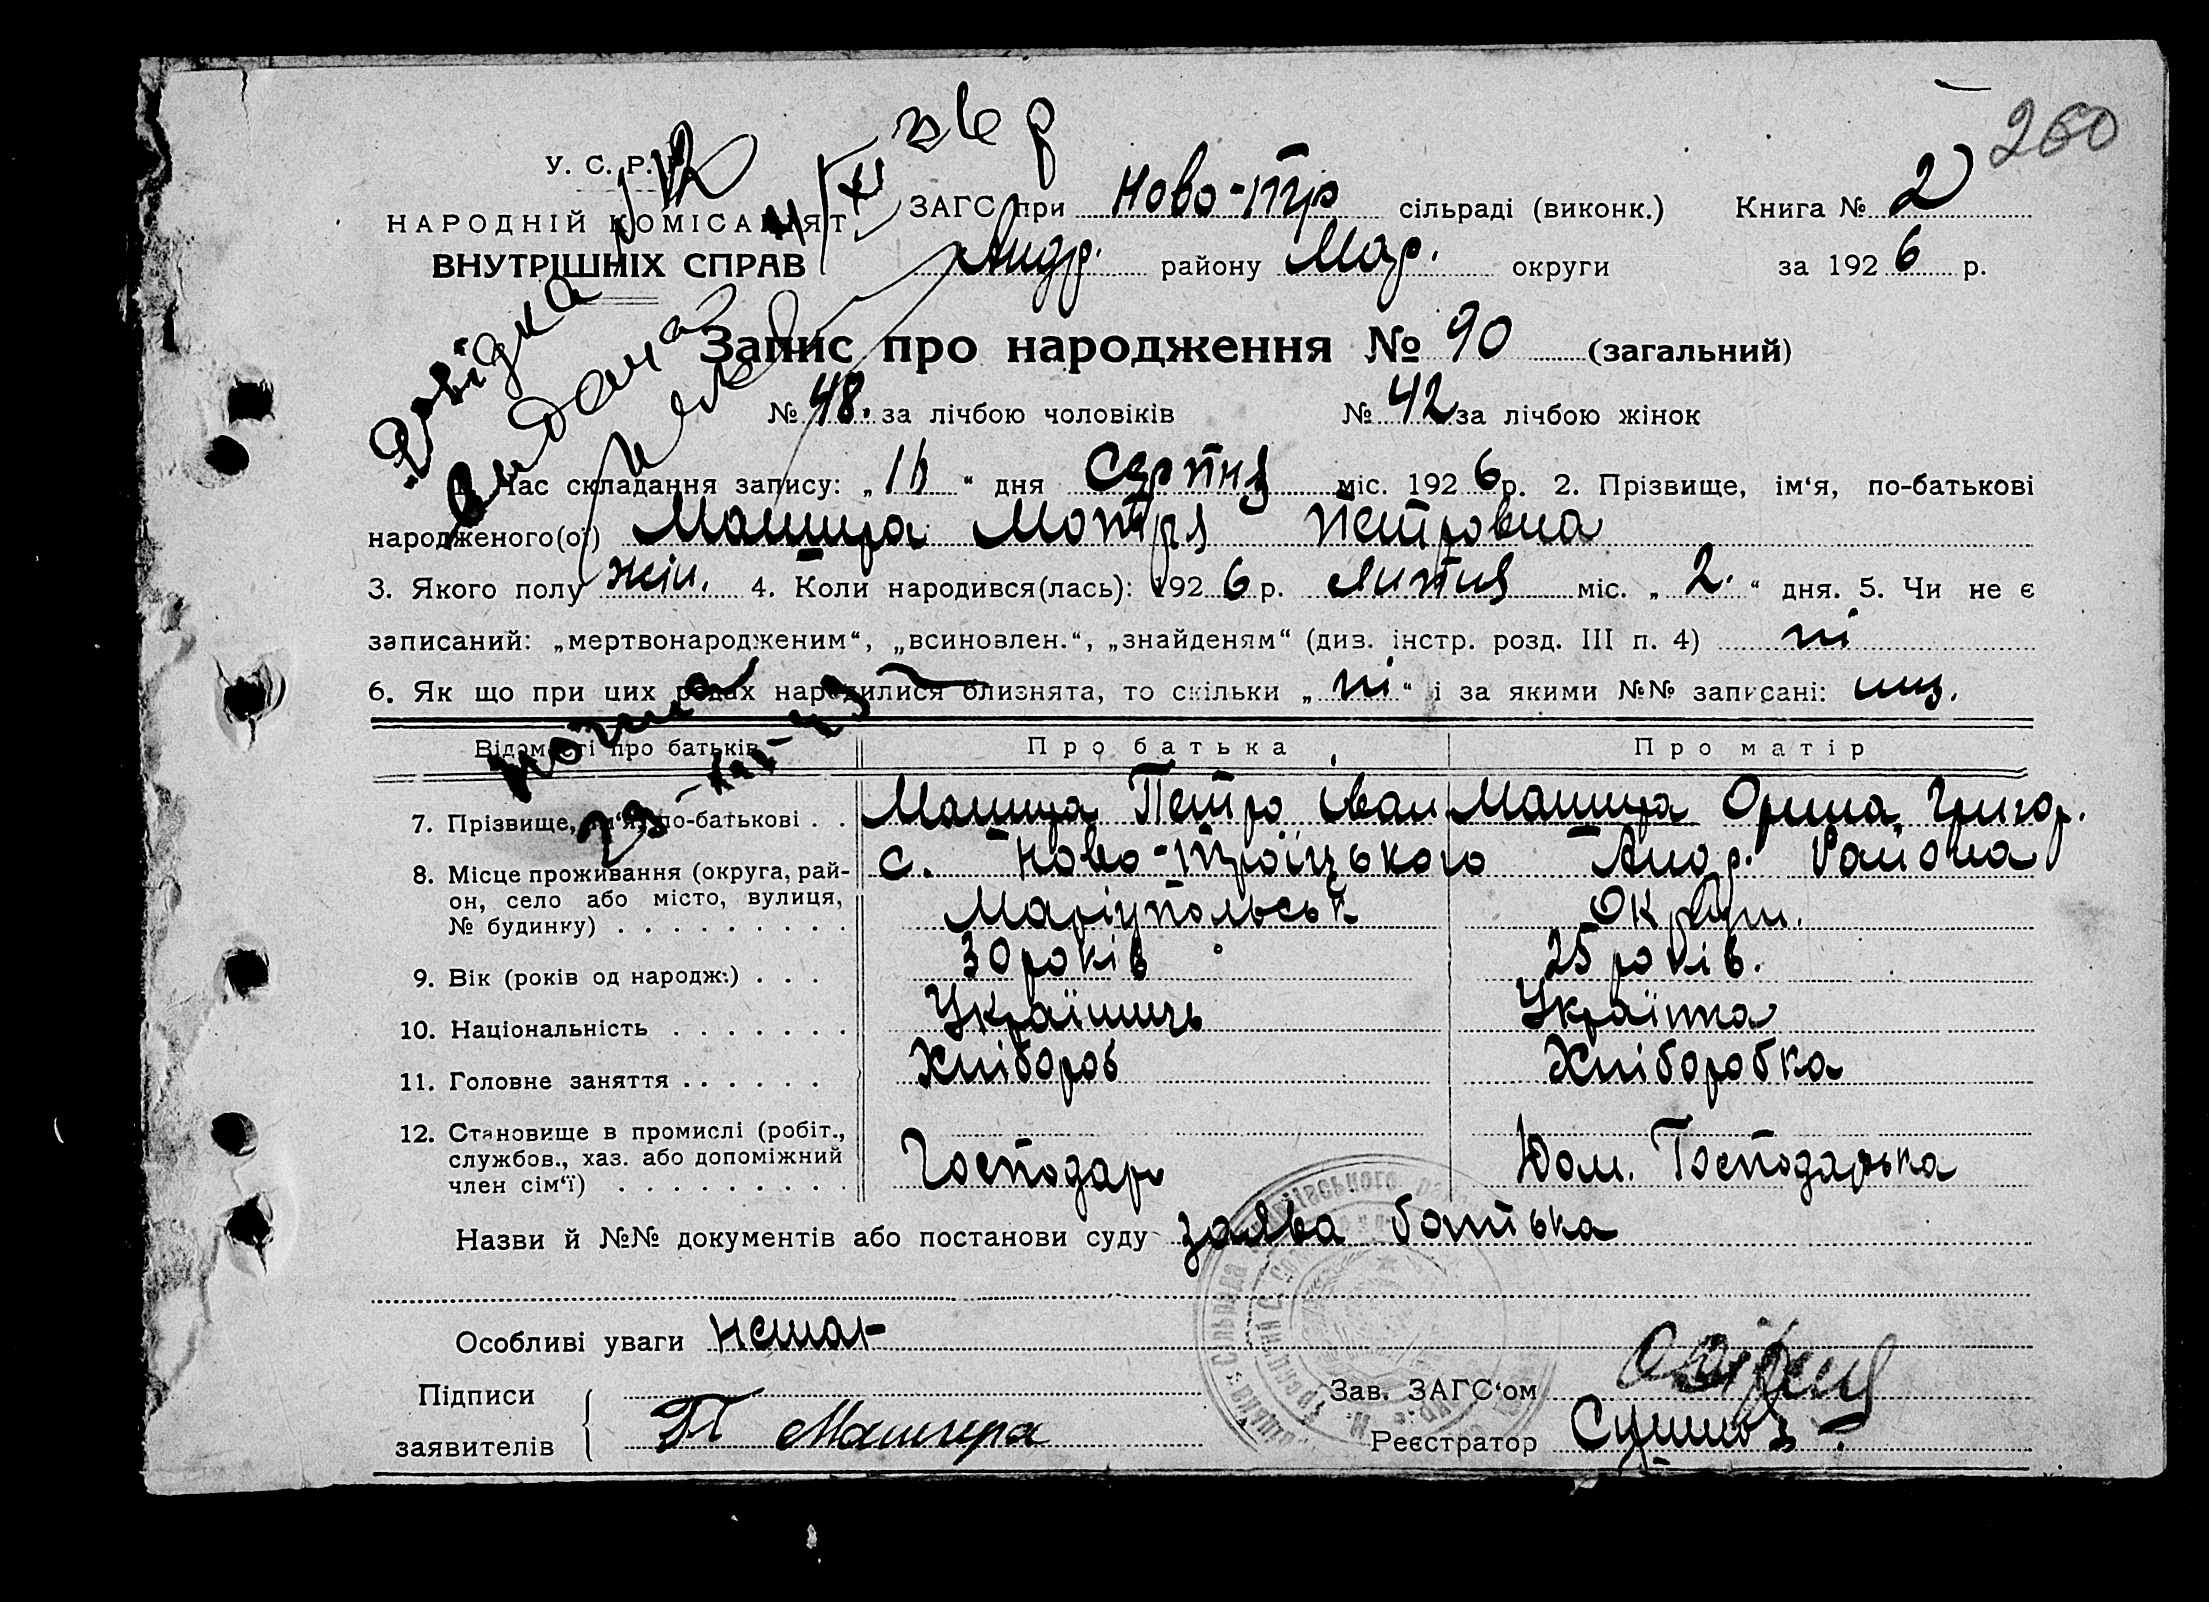 260
У. С. Р. Р.
НАРОДНІЙ КОМІСАРІЯТ
ВНУТРІШНІХ СПРАВ
ЗАГС при Ново-Тр сільраді (виконк.) Книга № 2
Андр. району Мар. округи за 1926 р.
Довідка
видана
Запис про народження № 90 (загальний)
№ 48. за лічбою чоловіків № 42 за лічбою жінок
1. Час складання запису: „11“ дня Серпня міс. 1926 р. 2. Прізвище, ім‘я, по-батькові
народженого(ої) Машира Мотря Петровна
3. Якого полу жін. 4. Коли народився(лась): 1926 р. липня міс. „2.“ дня. 5. Чи не є
записаний: „мертвонародженим“, „всиновлен.“, „знайденям“ (див. інстр. розд. III п. 4) ні
6. Як що при цих родах народилися близнята, то скільки „ні“ і за якими №№ записані:
Відомості про батьків Про батька Про матір
7. Прізвище, ім‘я, по-батькові . . Машира Петро Іван Машира Орина Григор.
8. Місце проживання (округа, рай-
он, село або місто, вулиця,
№ будинку) . . . . . . . . . с. Ново-Троїцького Андр. Района
Маріупольськ Округи.
9. Вік (років од народж.) . . . 30 років 25 років.
10. Національність . . . . . . . Українець Українка
11. Головне заняття . . . . . . Хлібороб Хліборобка
12. Становище в промислі (робіт.,
службов., хаз. або допоміжний
член сім‘ї) . . . . . . . . . Господар Дом. Господарька
Назви й №№ документів або постанови суду заява батька
Особливі уваги немає
Підписи
заявителів П Машира
Зав. ЗАГС‘ом
Реєстратор